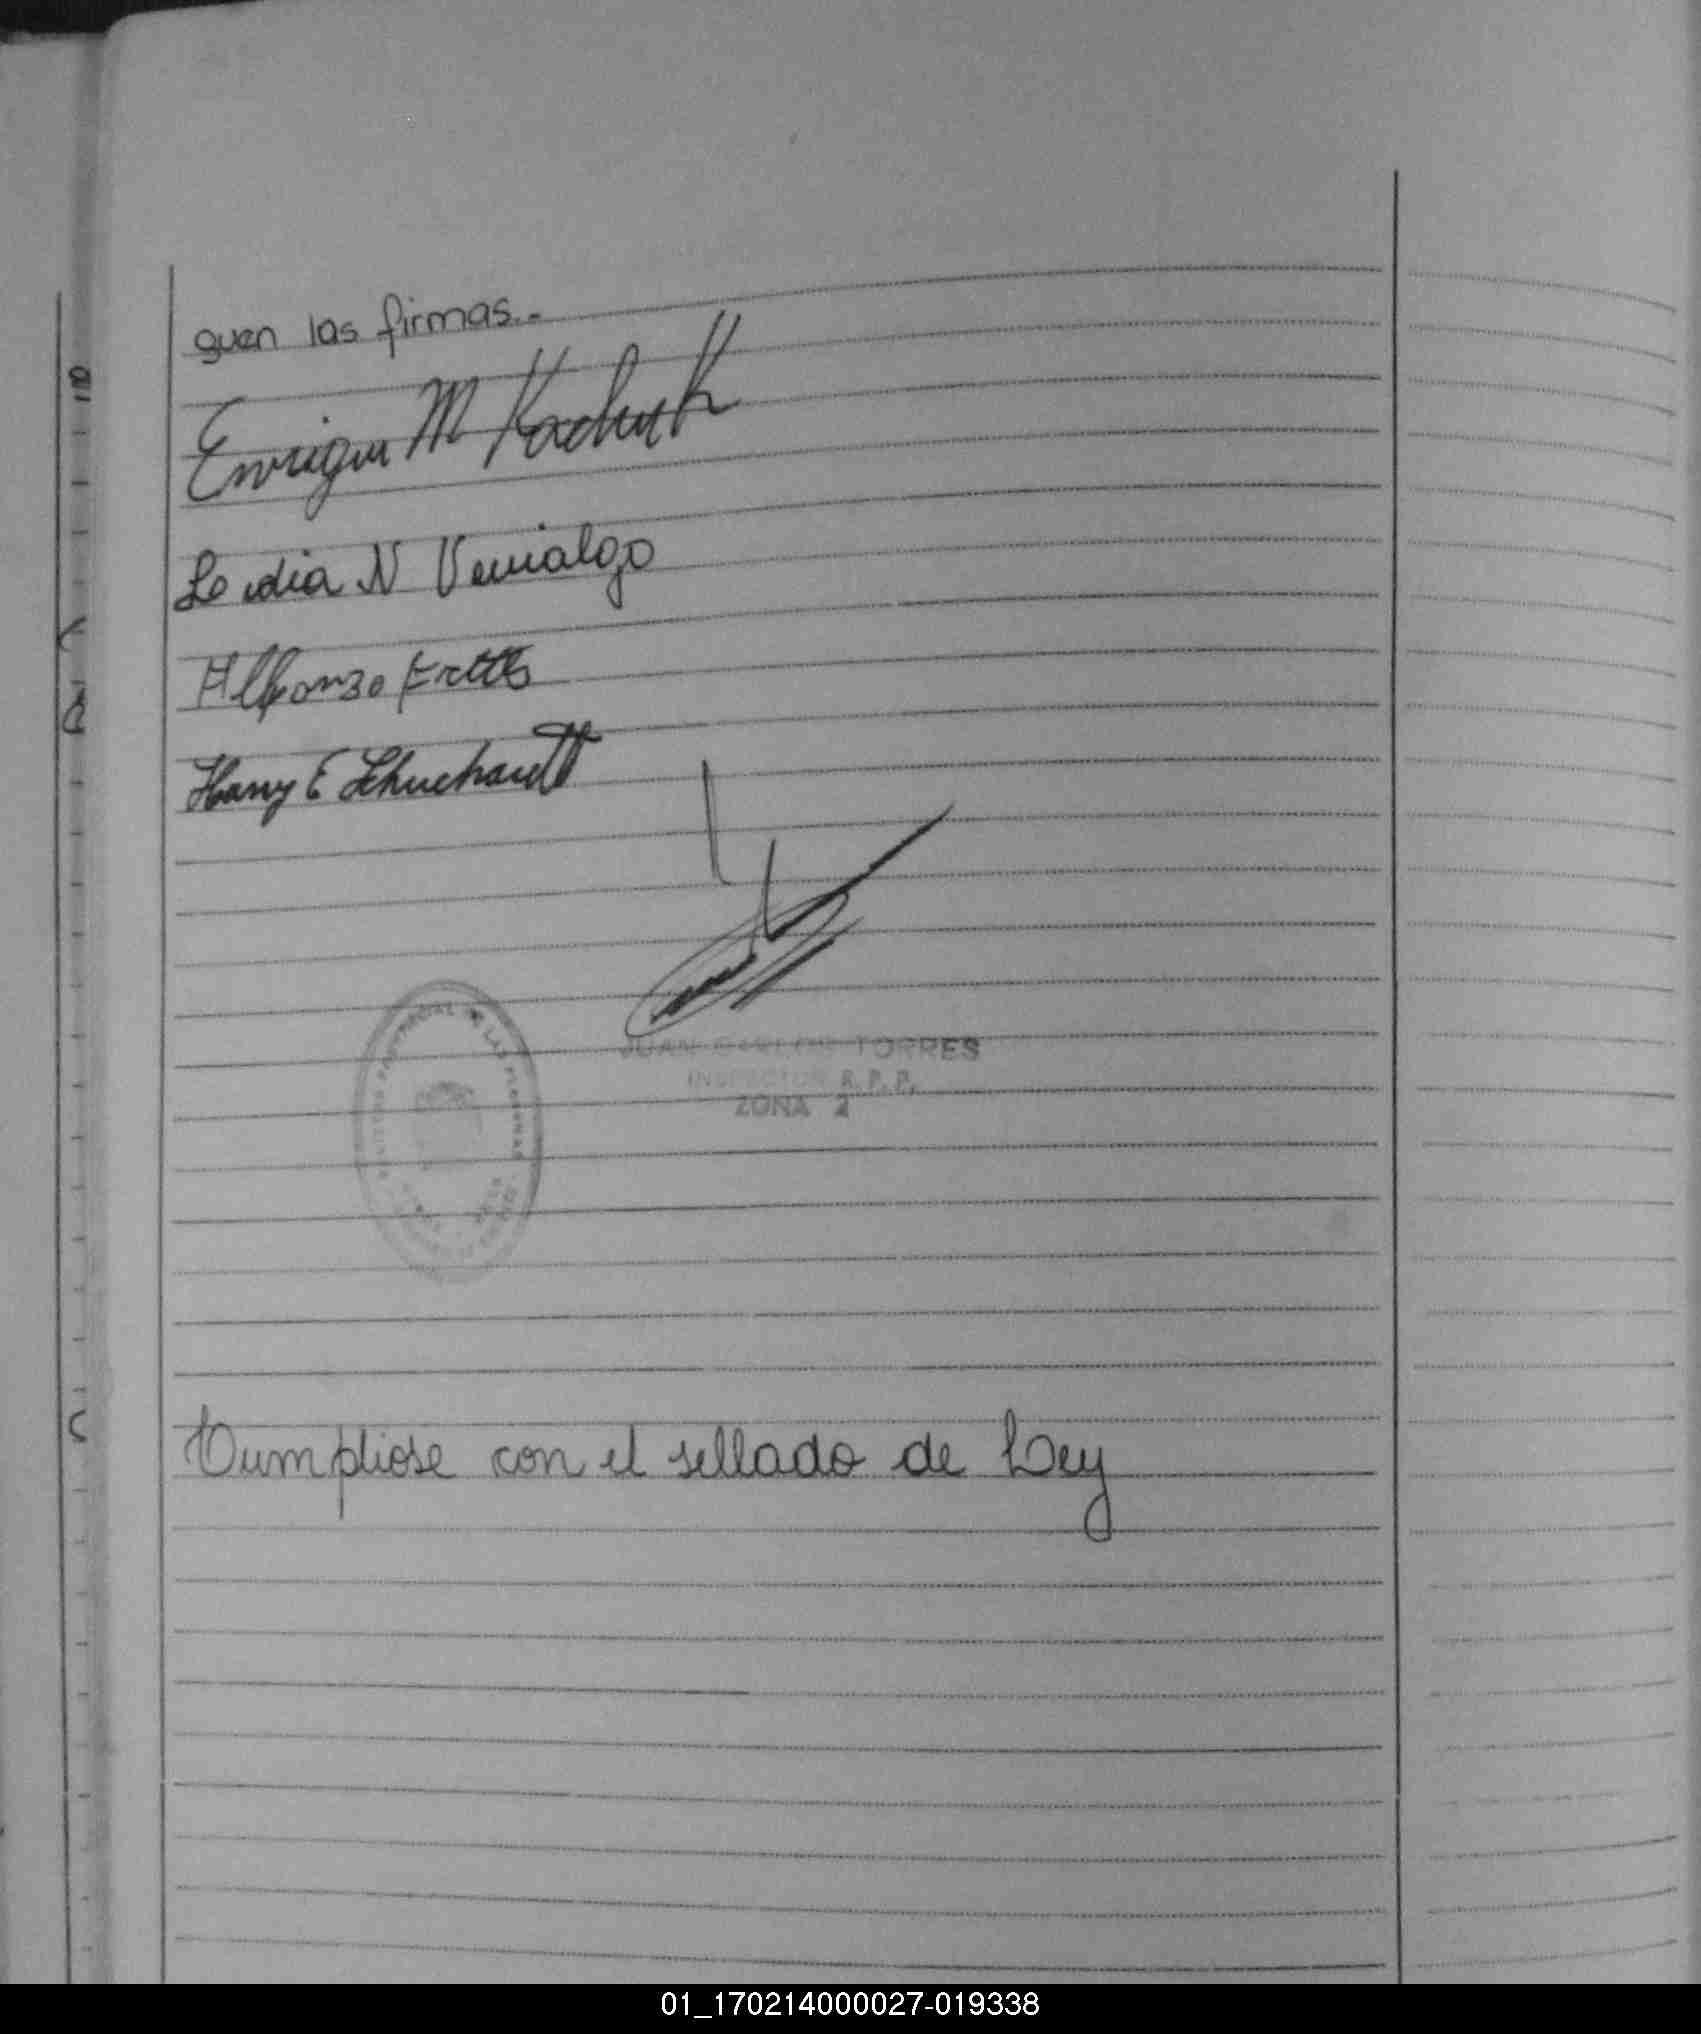 guen las firmas..-
Enrique M Kachuk
Leidia N Venialgo
Alfonzo
Harry E Schuchardt
JUAN CARLOS TORRES
INSPECTOR R. P. P.
ZONA 2
PROVINCIAL DE LAS PERSONAS
Cumpliose con el sellado de Ley
01_170214000027-019338